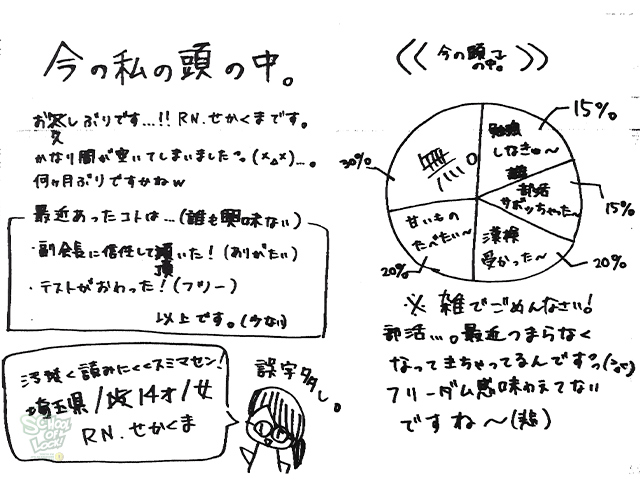 今の私の頭の中。
お久しぶりです…!! R.N.せかくまです。
かなり間が空いてしまいました。(×△×)…。
何ヶ月ぶりですかねw
最近あったコトは…(誰も興味ない)
・副会長に信任して頂いた!(ありがたい)
・テストがおわった!(フリー)
以上です。(少ない)
汚雑く読みにくくスミマセン!
埼玉県/14才/女
R.N.せかくま
誤字多し。
《今の頭の中。》
15%
勉強しなきゅ〜
15%
部活サボッちゃった〜
20%
漢検受かった〜
20%
甘いものたべたい〜
30%
無
※雑でごめんなさい!
部活…。最近つまらなく
なってきちゃってるんですっ
フリーダム感味わえてない
ですね〜(悲)
SCHOOL OF LOCK!